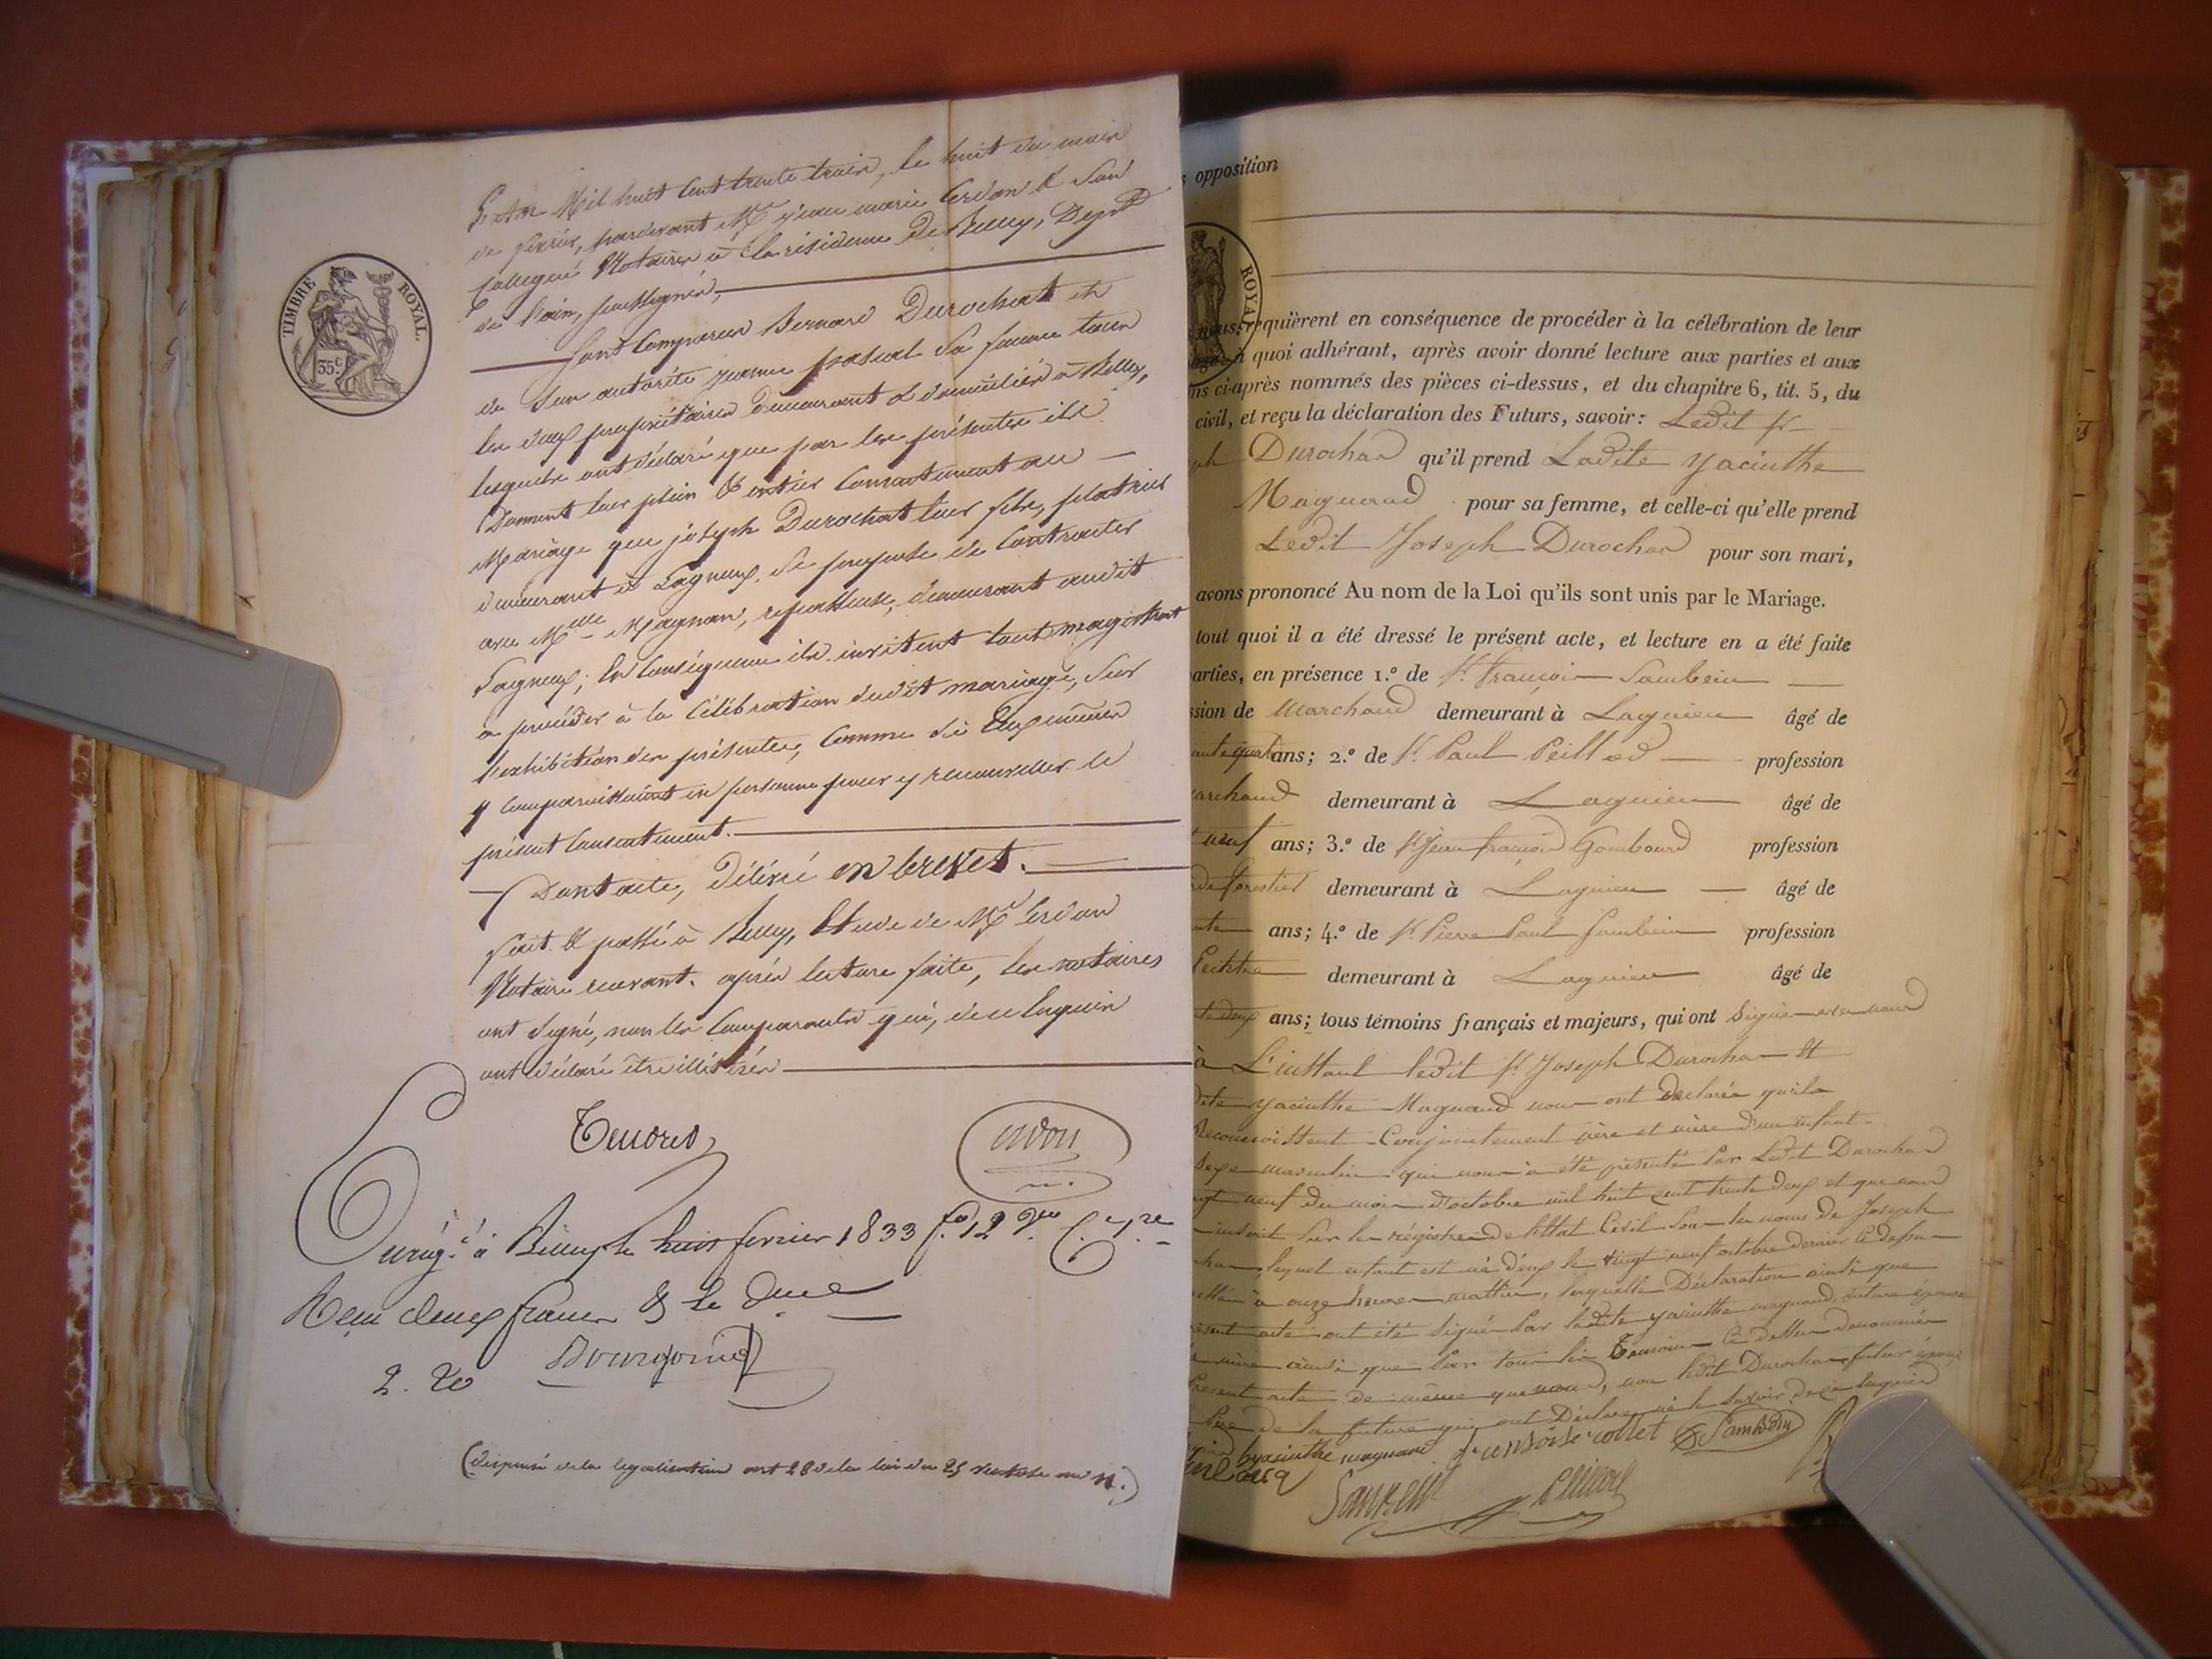 TIMBRE ROYAL.
35 c.
L'an Mil huit Cent trente trois, le huit du mois
de février, pardevant Me jean marie Cerdon & Son
Collegue Notaires à la résidence de Belley, Dept
de l'ain, soussignés,
Sont Comparus Bernard Durochat et
de Son autorité jeanne pascal Sa femme tous
les deux propriétaires demeurant & domiciliés à Belley,
lesquels ont déclaré que par les présentes ils
Donnent leur plein & entier Consentement au
Mariage que joseph Durochat leur fils, platrier
demeurant à Lagneux, Se propose de Contracter
avec Melle Magnan, repasseuse, demeurant audit
Lagneux; En Conséquence ils invitent tout magistrat
à procéder à la Célébration dudit mariage, Sur
l'exhibition des présentes, Comme Si Eux mêmes
y Comparoissaient en personne pour y renouveller le
présent Consentement.
Dont acte, délivré en brevet.
fait & passé à Belley, Etude de Me Cerdon
Notaire recevant. après lecture faite, les notaires
ont Signé, non les Comparants qui, de ce Enquis
ont déclaré être illétérés
Cerdon
Enrég.é à Belley le huit fevrier 1833 f.o 12
Reçu deux francs & le dme
2. 20
(dispensé de la légalisation art 28 de la loi du 25 ventose an 11.)
s opposition
ROYAL
nous requièrent en conséquence de procéder à la célébration de leur
à quoi adhérant, après avoir donné lecture aux parties et aux
ns ci-après nommés des pièces ci-dessus, et du chapitre 6, tit. 5, du
civil, et reçu la déclaration des Futurs, savoir: Ledit Sr
ph Durochat qu'il prend Ladite yacinthe
Magnand pour sa femme, et celle-ci qu'elle prend
Ledit Joseph Durochat pour son mari,
avons prononcé Au nom de la Loi qu'ils sont unis par le Mariage.
tout quoi il a été dressé le présent acte, et lecture en a été faite
arties, en présence 1.º de Sr. françois Sambein
ssion de Marchand demeurant à Lagnieu âgé de
ans; 2.º de Sr. Paul Peillod profession
archand demeurant à Lagnieu âgé de
neuf ans; 3.º de Sr Jean françois Gombourd profession
de forestier demeurant à Lagnieu âgé de
nte ans; 4.º de Sr. Pierre Paul Sambein profession
demeurant à Lagnieu âgé de
te deux ans; tous témoins français et majeurs, qui ont Signé avec nous
à L'instant ledit Sr. Joseph Durochat Et
dite yacinthe Magnand nous ont déclarés quils
Reconnoissent Conjointement père et mère d'un enfant
Sexe masculin qui nous à été présenté Par Ledit Durochat
ngt neuf Du mois d'octobre mil huit cent trente deux et que nous
inscrit Sur les régistres de l'Etat Civil Sous les noms de Joseph
lequel enfant est né d'eux le vingt neuf octobre dernier
à onze heures mattin, laquelle Déclaration ainsi que
ésent acte ont été Signés Par ladite yacinthe magnand, future épouse
mère ainsi que Par tous les Temoins Ci dessus denommés
Present acte de même que nous, non ledit Durochat futur époux
Père de la future qui ont Déclaré ne le Savoir de ce Enquis
hyacinthe magnand fransoise collet Sambein
Sambein Peillod